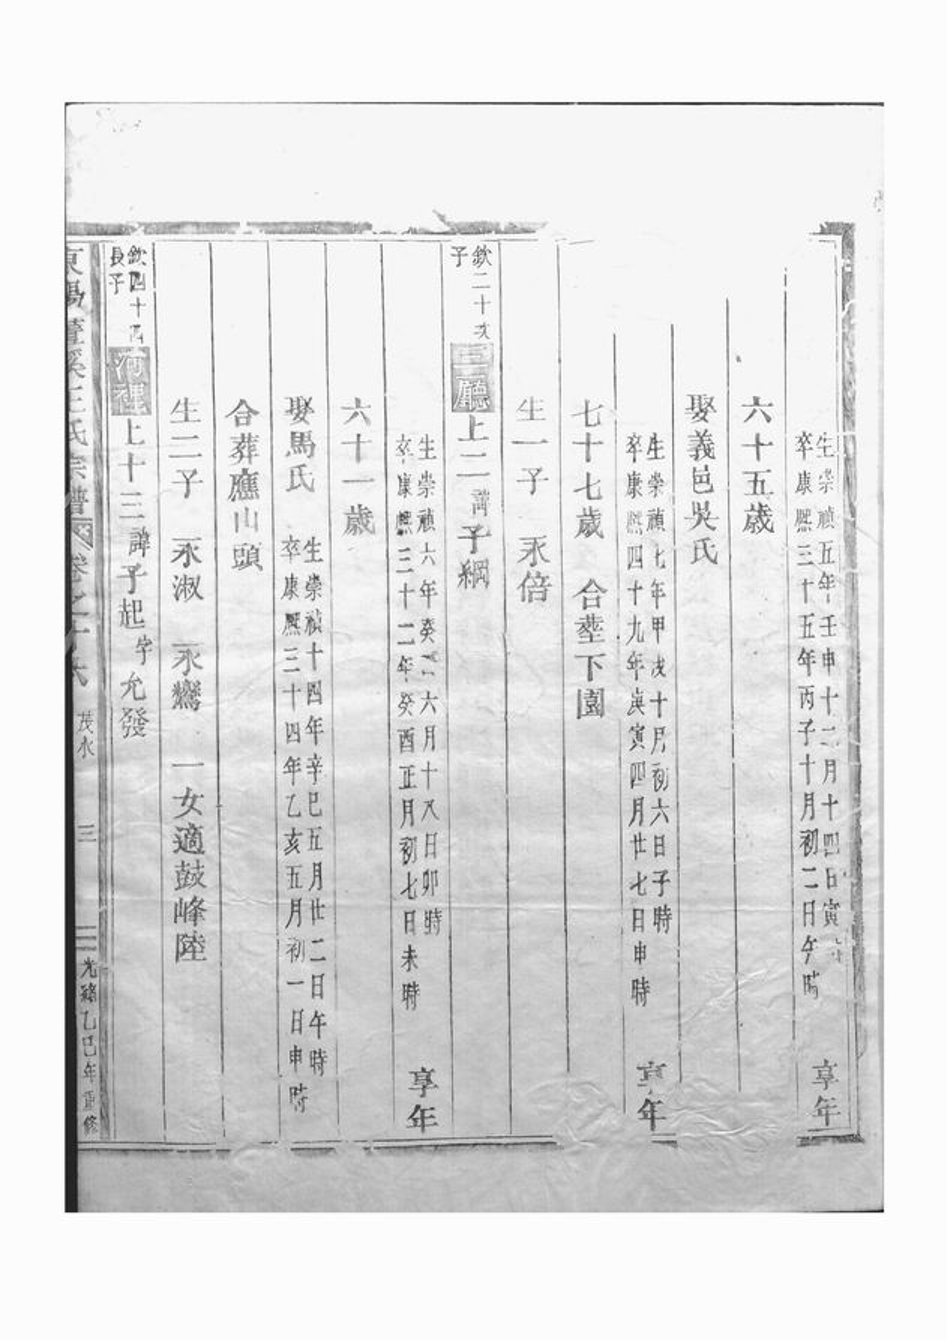 生崇禎五年壬申十二月十四日寅時
卒康熙三十五年丙子十月初二日午時
享年
六十五歲
娶義邑吳氏
生崇禎七年甲戌十月初六日子時
卒康熙四十九年庚寅四月廿七日申時
享年
七十七歲 合塟下園
生一子 永倍
欽二十次
子
三廳
上二諱子綱
生崇禎六年癸 六月十八日卯時
卒康熙三十二年癸酉正月初七日未時
享年
六十一歲
娶馬氏
生崇禎十四年辛巳五月廿二日午時
卒康熙三十四年乙亥五月初一日申時
合葬應山頭
生二子 永淑 永鸞 一女適鼓峰陸
欽四十
長子
河裡
上十三諱子起字允發
東陽 溪王氏宗譜
卷之十六
茂永
三
光緒乙巳年重修